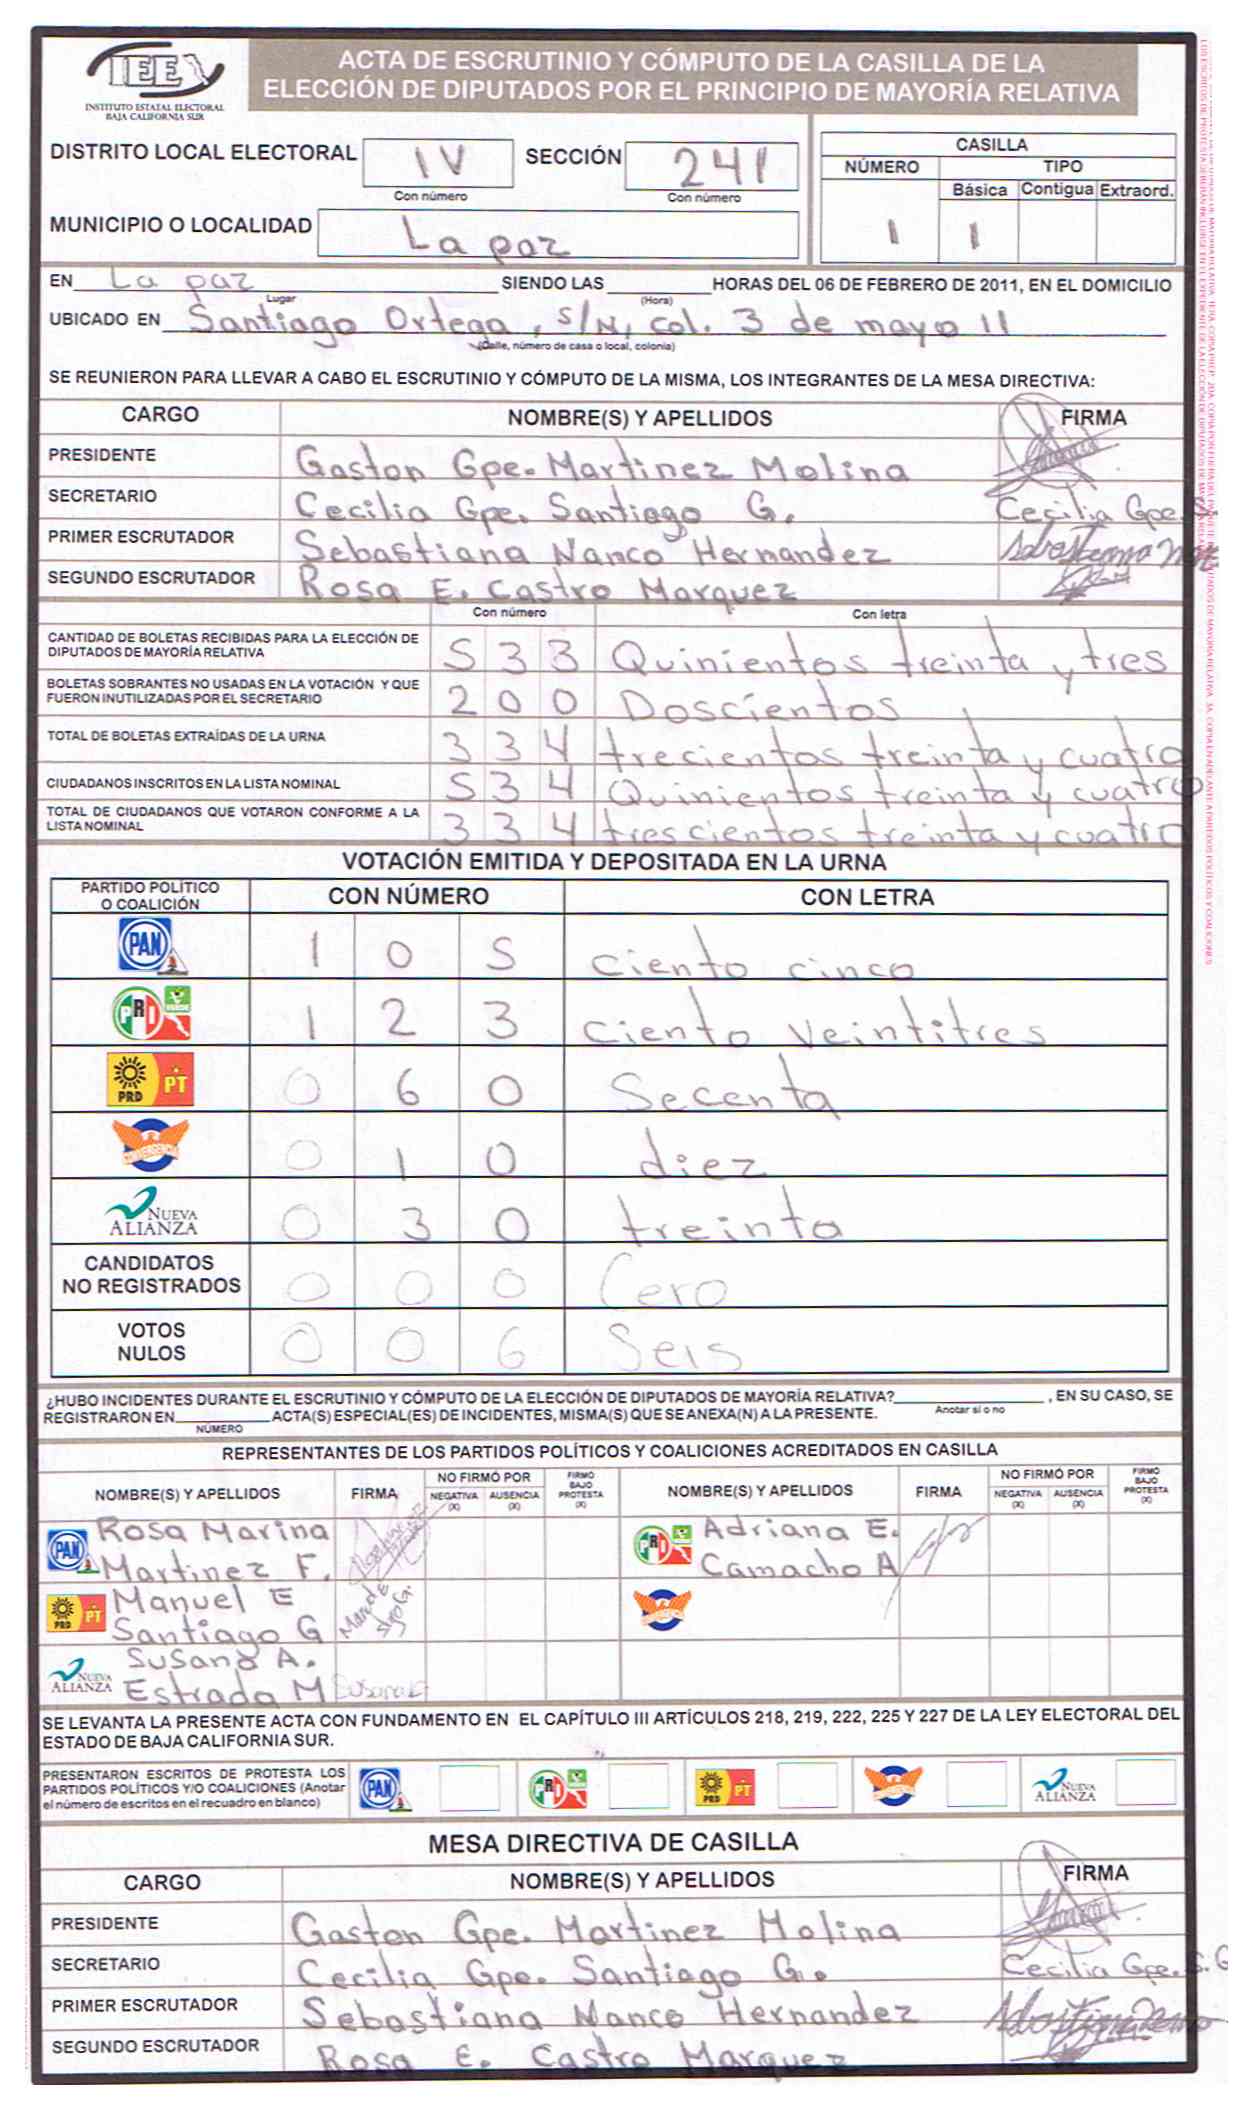 IEEX
INSTITUTO ESTATAL ELECTORAL
BAJA CALIFORNIA SUR
ACTA DE ESCRUTINIO Y CÓMPUTO DE LA CASILLA DE LA
ELECCIÓN DE DIPUTADOS POR EL PRINCIPIO DE MAYORÍA RELATIVA
DISTRITO LOCAL ELECTORAL IV SECCIÓN 241
Con número Con número
MUNICIPIO O LOCALIDAD La paz
CASILLA
NÚMERO TIPO
Básica Contigua Extraord.
1 1
EN La paz SIENDO LAS HORAS DEL 06 DE FEBRERO DE 2011, EN EL DOMICILIO
Lugar (Hora)
UBICADO EN Santiago Ortega, s/N, col. 3 de mayo 11
(Calle, número de casa o local, colonia)
SE REUNIERON PARA LLEVAR A CABO EL ESCRUTINIO Y CÓMPUTO DE LA MISMA, LOS INTEGRANTES DE LA MESA DIRECTIVA:
CARGO NOMBRE(S) Y APELLIDOS FIRMA
PRESIDENTE Gaston Gpe. Martinez Molina
SECRETARIO Cecilia Gpe. Santiago G. Cecilia Gpe. S.
PRIMER ESCRUTADOR Sebastiana Nanco Hernandez
SEGUNDO ESCRUTADOR Rosa E. Castro Marquez
Con número Con letra
CANTIDAD DE BOLETAS RECIBIDAS PARA LA ELECCIÓN DE
DIPUTADOS DE MAYORÍA RELATIVA 533 Quinientos treinta y tres
BOLETAS SOBRANTES NO USADAS EN LA VOTACIÓN Y QUE
FUERON INUTILIZADAS POR EL SECRETARIO 200 Doscientos
TOTAL DE BOLETAS EXTRAÍDAS DE LA URNA 334 trecientos treinta y cuatro
CIUDADANOS INSCRITOS EN LA LISTA NOMINAL 534 Quinientos treinta y cuatro
TOTAL DE CIUDADANOS QUE VOTARON CONFORME A LA
LISTA NOMINAL 334 trescientos treinta y cuatro
VOTACIÓN EMITIDA Y DEPOSITADA EN LA URNA
PARTIDO POLÍTICO
O COALICIÓN CON NÚMERO CON LETRA
PAN 1 0 5 ciento cinco
PRI VERDE 1 2 3 ciento veintitres
PRD PT 0 6 0 Secenta
CONVERGENCIA 0 1 0 diez
NUEVA ALIANZA 0 3 0 treinta
CANDIDATOS
NO REGISTRADOS 0 0 0 Cero
VOTOS
NULOS 0 0 6 Seis
¿HUBO INCIDENTES DURANTE EL ESCRUTINIO Y CÓMPUTO DE LA ELECCIÓN DE DIPUTADOS DE MAYORÍA RELATIVA? , EN SU CASO, SE
Anotar sí o no
REGISTRARON EN ACTA(S) ESPECIAL(ES) DE INCIDENTES, MISMA(S) QUE SE ANEXA(N) A LA PRESENTE.
NÚMERO
REPRESENTANTES DE LOS PARTIDOS POLÍTICOS Y COALICIONES ACREDITADOS EN CASILLA
NOMBRE(S) Y APELLIDOS FIRMA NO FIRMÓ POR NEGATIVA (X) AUSENCIA (X) FIRMÓ BAJO PROTESTA (X) NOMBRE(S) Y APELLIDOS FIRMA NO FIRMÓ POR NEGATIVA (X) AUSENCIA (X) FIRMÓ BAJO PROTESTA (X)
PAN Rosa Marina PRI Adriana E.
Martinez F. Camacho A
PRD PT Manuel E
Santiago G
NUEVA ALIANZA Susana A.
Estrada M Susana E
SE LEVANTA LA PRESENTE ACTA CON FUNDAMENTO EN EL CAPÍTULO III ARTÍCULOS 218, 219, 222, 225 Y 227 DE LA LEY ELECTORAL DEL
ESTADO DE BAJA CALIFORNIA SUR.
PRESENTARON ESCRITOS DE PROTESTA LOS
PARTIDOS POLÍTICOS Y/O COALICIONES (Anotar
el número de escritos en el recuadro en blanco) PAN PRI PRD PT NUEVA ALIANZA
MESA DIRECTIVA DE CASILLA
CARGO NOMBRE(S) Y APELLIDOS FIRMA
PRESIDENTE Gaston Gpe. Martinez Molina
SECRETARIO Cecilia Gpe. Santiago G. Cecilia Gpe. S. G
PRIMER ESCRUTADOR Sebastiana Nanco Hernandez
SEGUNDO ESCRUTADOR Rosa E. Castro Marquez